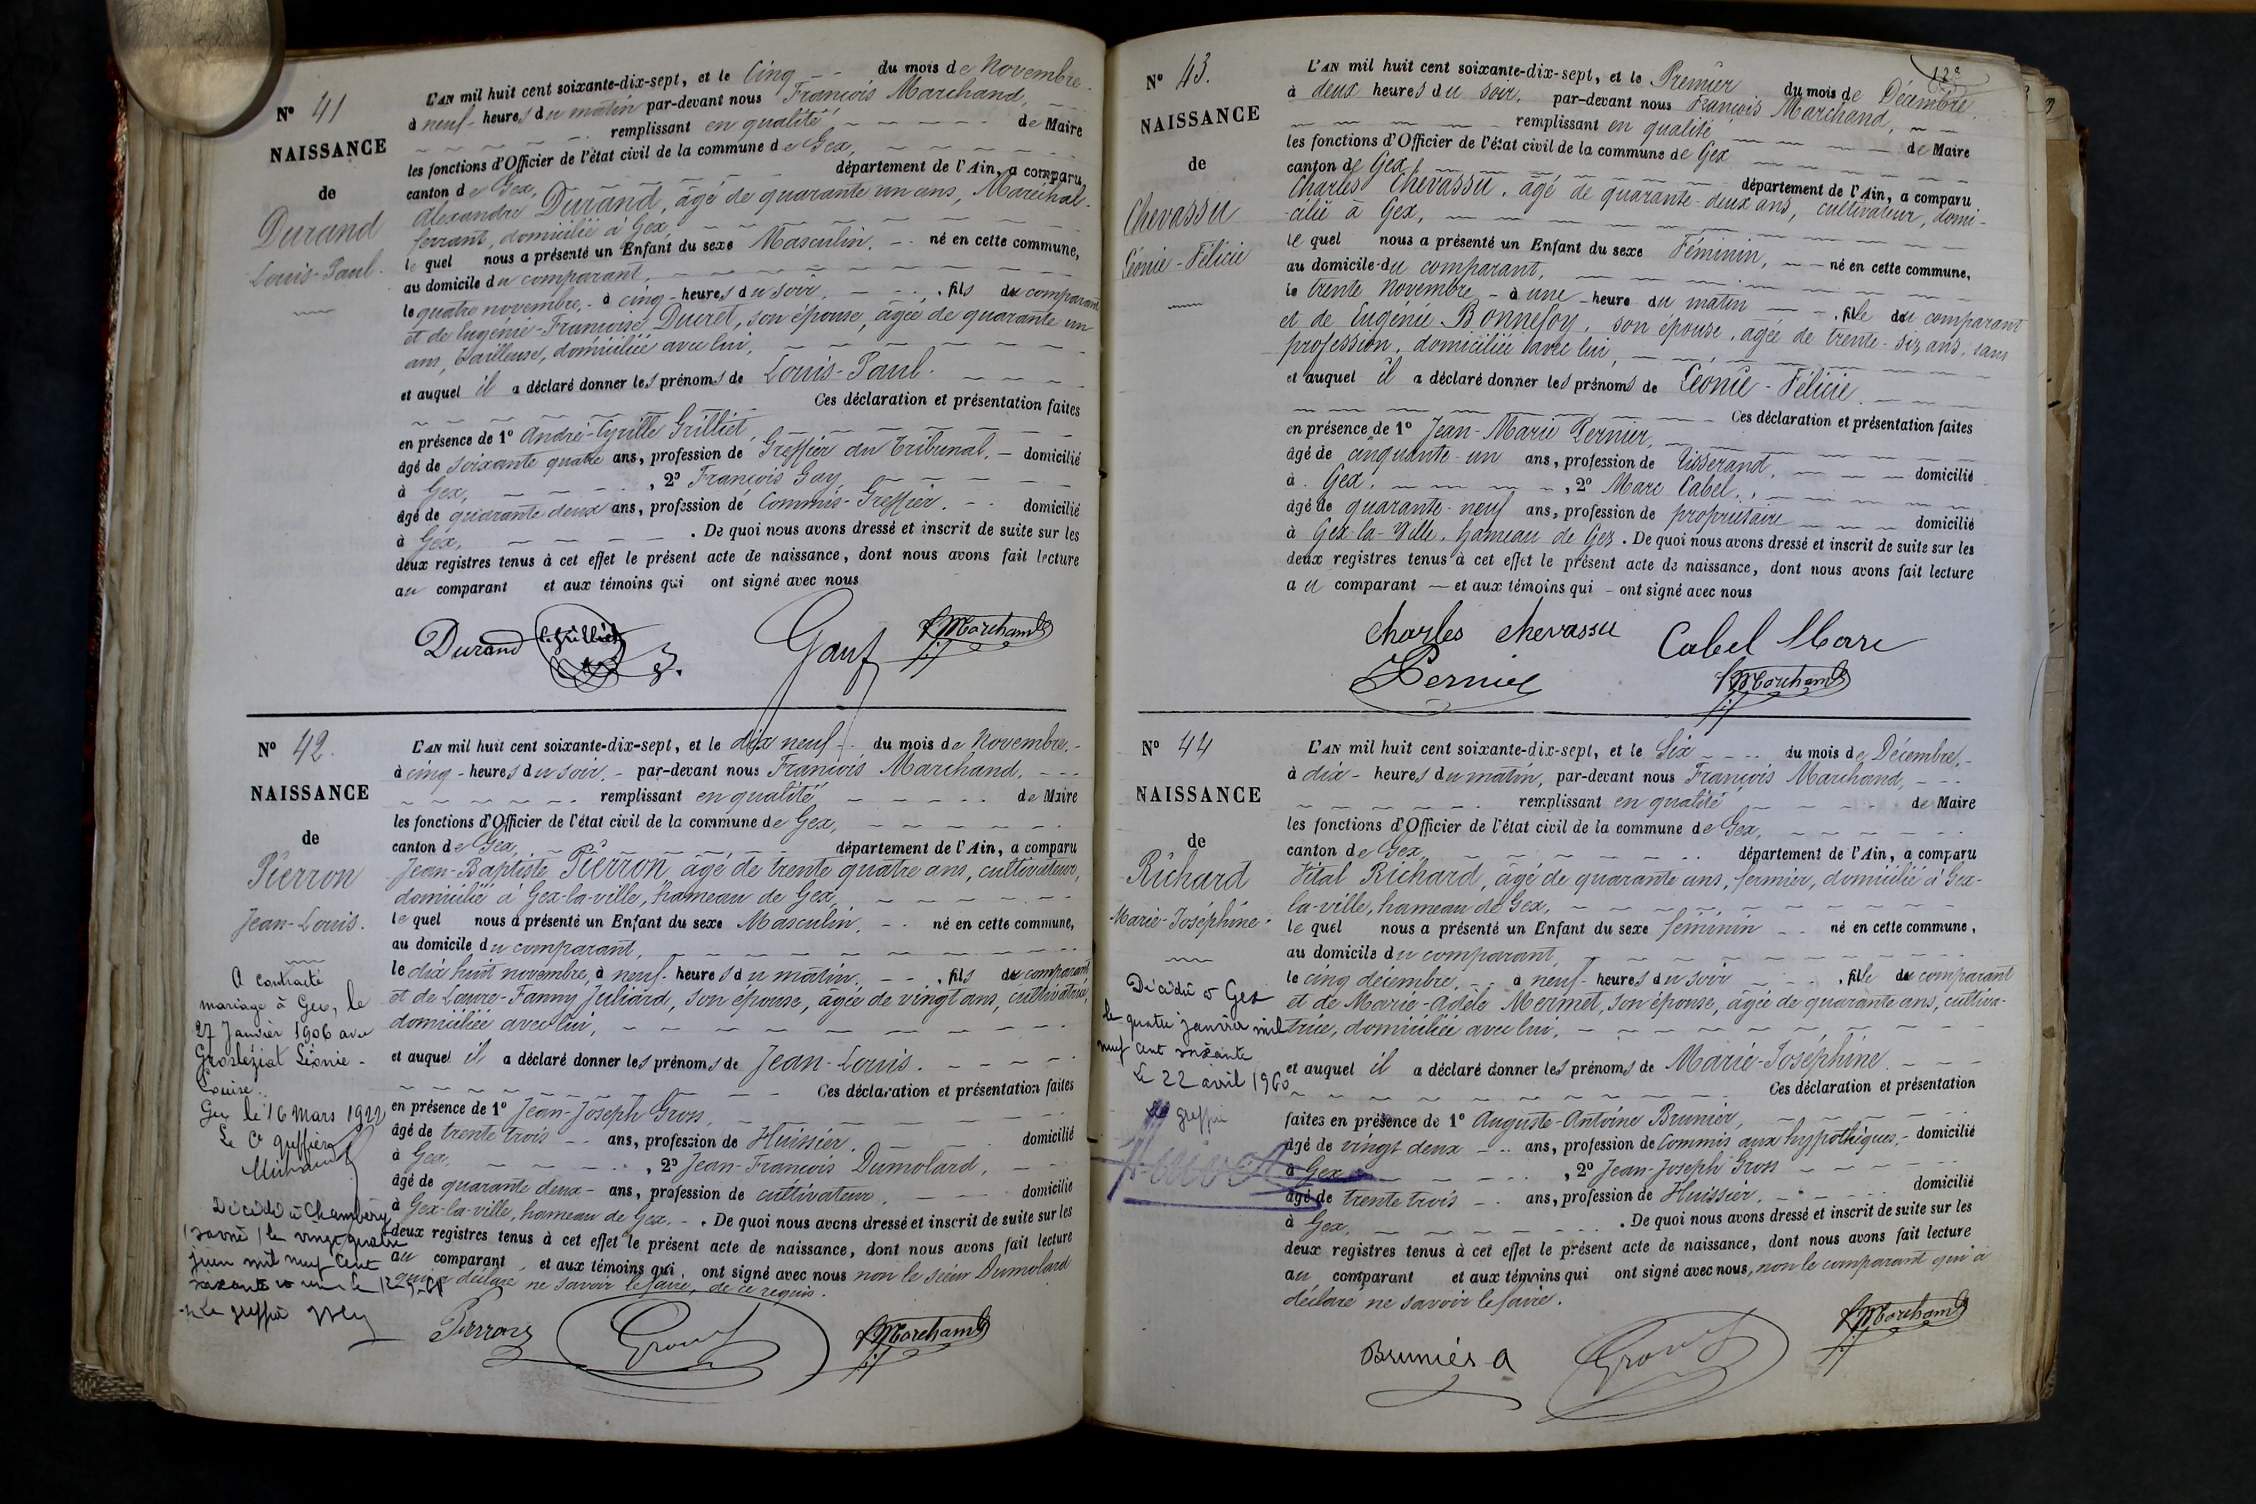 N° 41
NAISSANCE
de
Durand
Louis-Paul.
L'AN mil huit cent soixante-dix-sept, et le Cinq du mois de Novembre
à neuf heures du matin par-devant nous François Marchand,
remplissant en qualité de Maire
les fonctions d'Officier de l'état civil de la commune de Gex,
canton de Gex, département de l'Ain, a comparu
Alexandre Durand, âgé de quarante un ans, Maréchal-
ferrant, domicilié à Gex,
le quel nous a présenté un Enfant du sexe Masculin, né en cette commune,
au domicile du comparant,
le quatre novembre, à cinq heures du soir, fils du comparant
et de Eugénie-Françoise Ducret, son épouse, âgée de quarante un
ans, tailleuse, domiciliée avec lui,
et auquel il a déclaré donner les prénoms de Louis-Paul.
Ces déclaration et présentation faites
en présence de 1° André-Cyrille Grilliet
âgé de soixante quatre ans, profession de Greffier du Tribunal, domicilié
à Gex, , 2° François Gay,
âgé de quarante deux ans, profession de Commis-Greffier. domicilié
à Gex, . De quoi nous avons dressé et inscrit de suite sur les
deux registres tenus à cet effet le présent acte de naissance, dont nous avons fait lecture
au comparant et aux témoins qui ont signé avec nous
Durand Grilliet Gay f Marchand
N° 42.
NAISSANCE
de
Pierron
Jean-Louis.
A contracté
mariage à Gex, le
27 Janvier 1906 avec
Grosléziat Léonie-
Louise.
Gex le 16 Mars 1922
Le Cs greffier
Décédé à Chambéry
(savoie) le vingt quatre
juin mil neuf cent
soixante et un le
Le greffier
L'AN mil huit cent soixante-dix-sept, et le dix neuf du mois de Novembre.
à cinq heures du soir, par-devant nous François Marchand,
remplissant en qualité de Maire
les fonctions d'Officier de l'état civil de la commune de Gex,
canton de Gex, département de l'Ain, a comparu
Jean-Baptiste Pierron âgé de trente quatre ans, cultivateur,
domicilié à Gex-la-ville, hameau de Gex,
le quel nous a présenté un Enfant du sexe Masculin, né en cette commune,
au domicile du comparant,
le dix huit novembre, à neuf heures du matin, fils du comparant
et de Louise-Fanny Juliard, son épouse, âgée de vingt ans, cultivatrice,
domiciliée avec lui,
et auquel il a déclaré donner les prénoms de Jean-Louis.
Ces déclaration et présentation faites
en présence de 1° Jean-Joseph Gros,
âgé de trente trois ans, profession de Huissier, domicilié
à Gex, , 2° Jean-François Dumolard,
âgé de quarante deux ans, profession de cultivateur, domicilié
à Gex-la-ville, hameau de Gex. . De quoi nous avons dressé et inscrit de suite sur les
deux registres tenus à cet effet le présent acte de naissance, dont nous avons fait lecture
au comparant et aux témoins qui ont signé avec nous non le sieur Dumolard
qui a déclaré ne savoir le faire, de ce requis.
Pierron Gros f Marchand
128
N° 43.
NAISSANCE
de
Chevassu
Léonie-Félicie
L'AN mil huit cent soixante-dix-sept, et le Premier du mois de Décembre
à deux heures du soir, par-devant nous François Marchand,
remplissant en qualité de Maire
les fonctions d'Officier de l'état civil de la commune de Gex
canton de Gex, département de l'Ain, a comparu
Charles Chevassu, âgé de quarante-deux ans, cultivateur, domi-
cilié à Gex,
le quel nous a présenté un Enfant du sexe Féminin, né en cette commune,
au domicile du comparant,
le trente Novembre à une heure du matin , fille du comparant
et de Eugénie Bonnefoy, son épouse, âgée de trente-six ans, sans
profession, domiciliée avec lui,
et auquel il a déclaré donner les prénoms de Léonie-Félicie
Ces déclaration et présentation faites
en présence de 1° Jean-Marie Pernier,
âgé de cinquante-un ans, profession de tisserand, domicilié
à Gex, , 2° Marc Cabel,
âgé de quarante-neuf ans, profession de propriétaire domicilié
à Gex-la-Ville, hameau de Gex . De quoi nous avons dressé et inscrit de suite sur les
deux registres tenus à cet effet le présent acte de naissance, dont nous avons fait lecture
au comparant et aux témoins qui ont signé avec nous
Charles Chevassu Cabel Marc
Pernier f Marchand
N° 44
NAISSANCE
de
Richard
Marie-Joséphine.
Décédée à Gex
le quatre janvier mil
neuf cent soixante
Le 22 avril 1960
Le greffier
L'AN mil huit cent soixante-dix-sept, et le Six du mois de Décembre,
à dix heures du matin, par-devant nous François Marchand,
remplissant en qualité de Maire
les fonctions d'Officier de l'état civil de la commune de Gex,
canton de Gex, département de l'Ain, a comparu
Vital Richard, âgé de quarante ans, fermier, domicilié à Gex-
la-ville, hameau de Gex,
le quel nous a présenté un Enfant du sexe féminin né en cette commune,
au domicile du comparant,
le cinq décembre, à neuf heures du soir , fille du comparant
et de Marie-Adèle Mermet, son épouse, âgée de quarante ans, cultiva-
trice, domiciliée avec lui,
et auquel il a déclaré donner les prénoms de Marie-Joséphine.
Ces déclaration et présentation
faites en présence de 1° Auguste-Antoine Brunier,
âgé de vingt deux ans, profession de Commis aux hypothèques, domicilié
à Gex , 2° Jean-Joseph Gros
âgé de trente trois ans, profession de Huissier, domicilié
à Gex, . De quoi nous avons dressé et inscrit de suite sur les
deux registres tenus à cet effet le présent acte de naissance, dont nous avons fait lecture
au comparant et aux témoins qui ont signé avec nous, non le comparant qui a
déclaré ne savoir le faire.
Brunier A Gros f Marchand